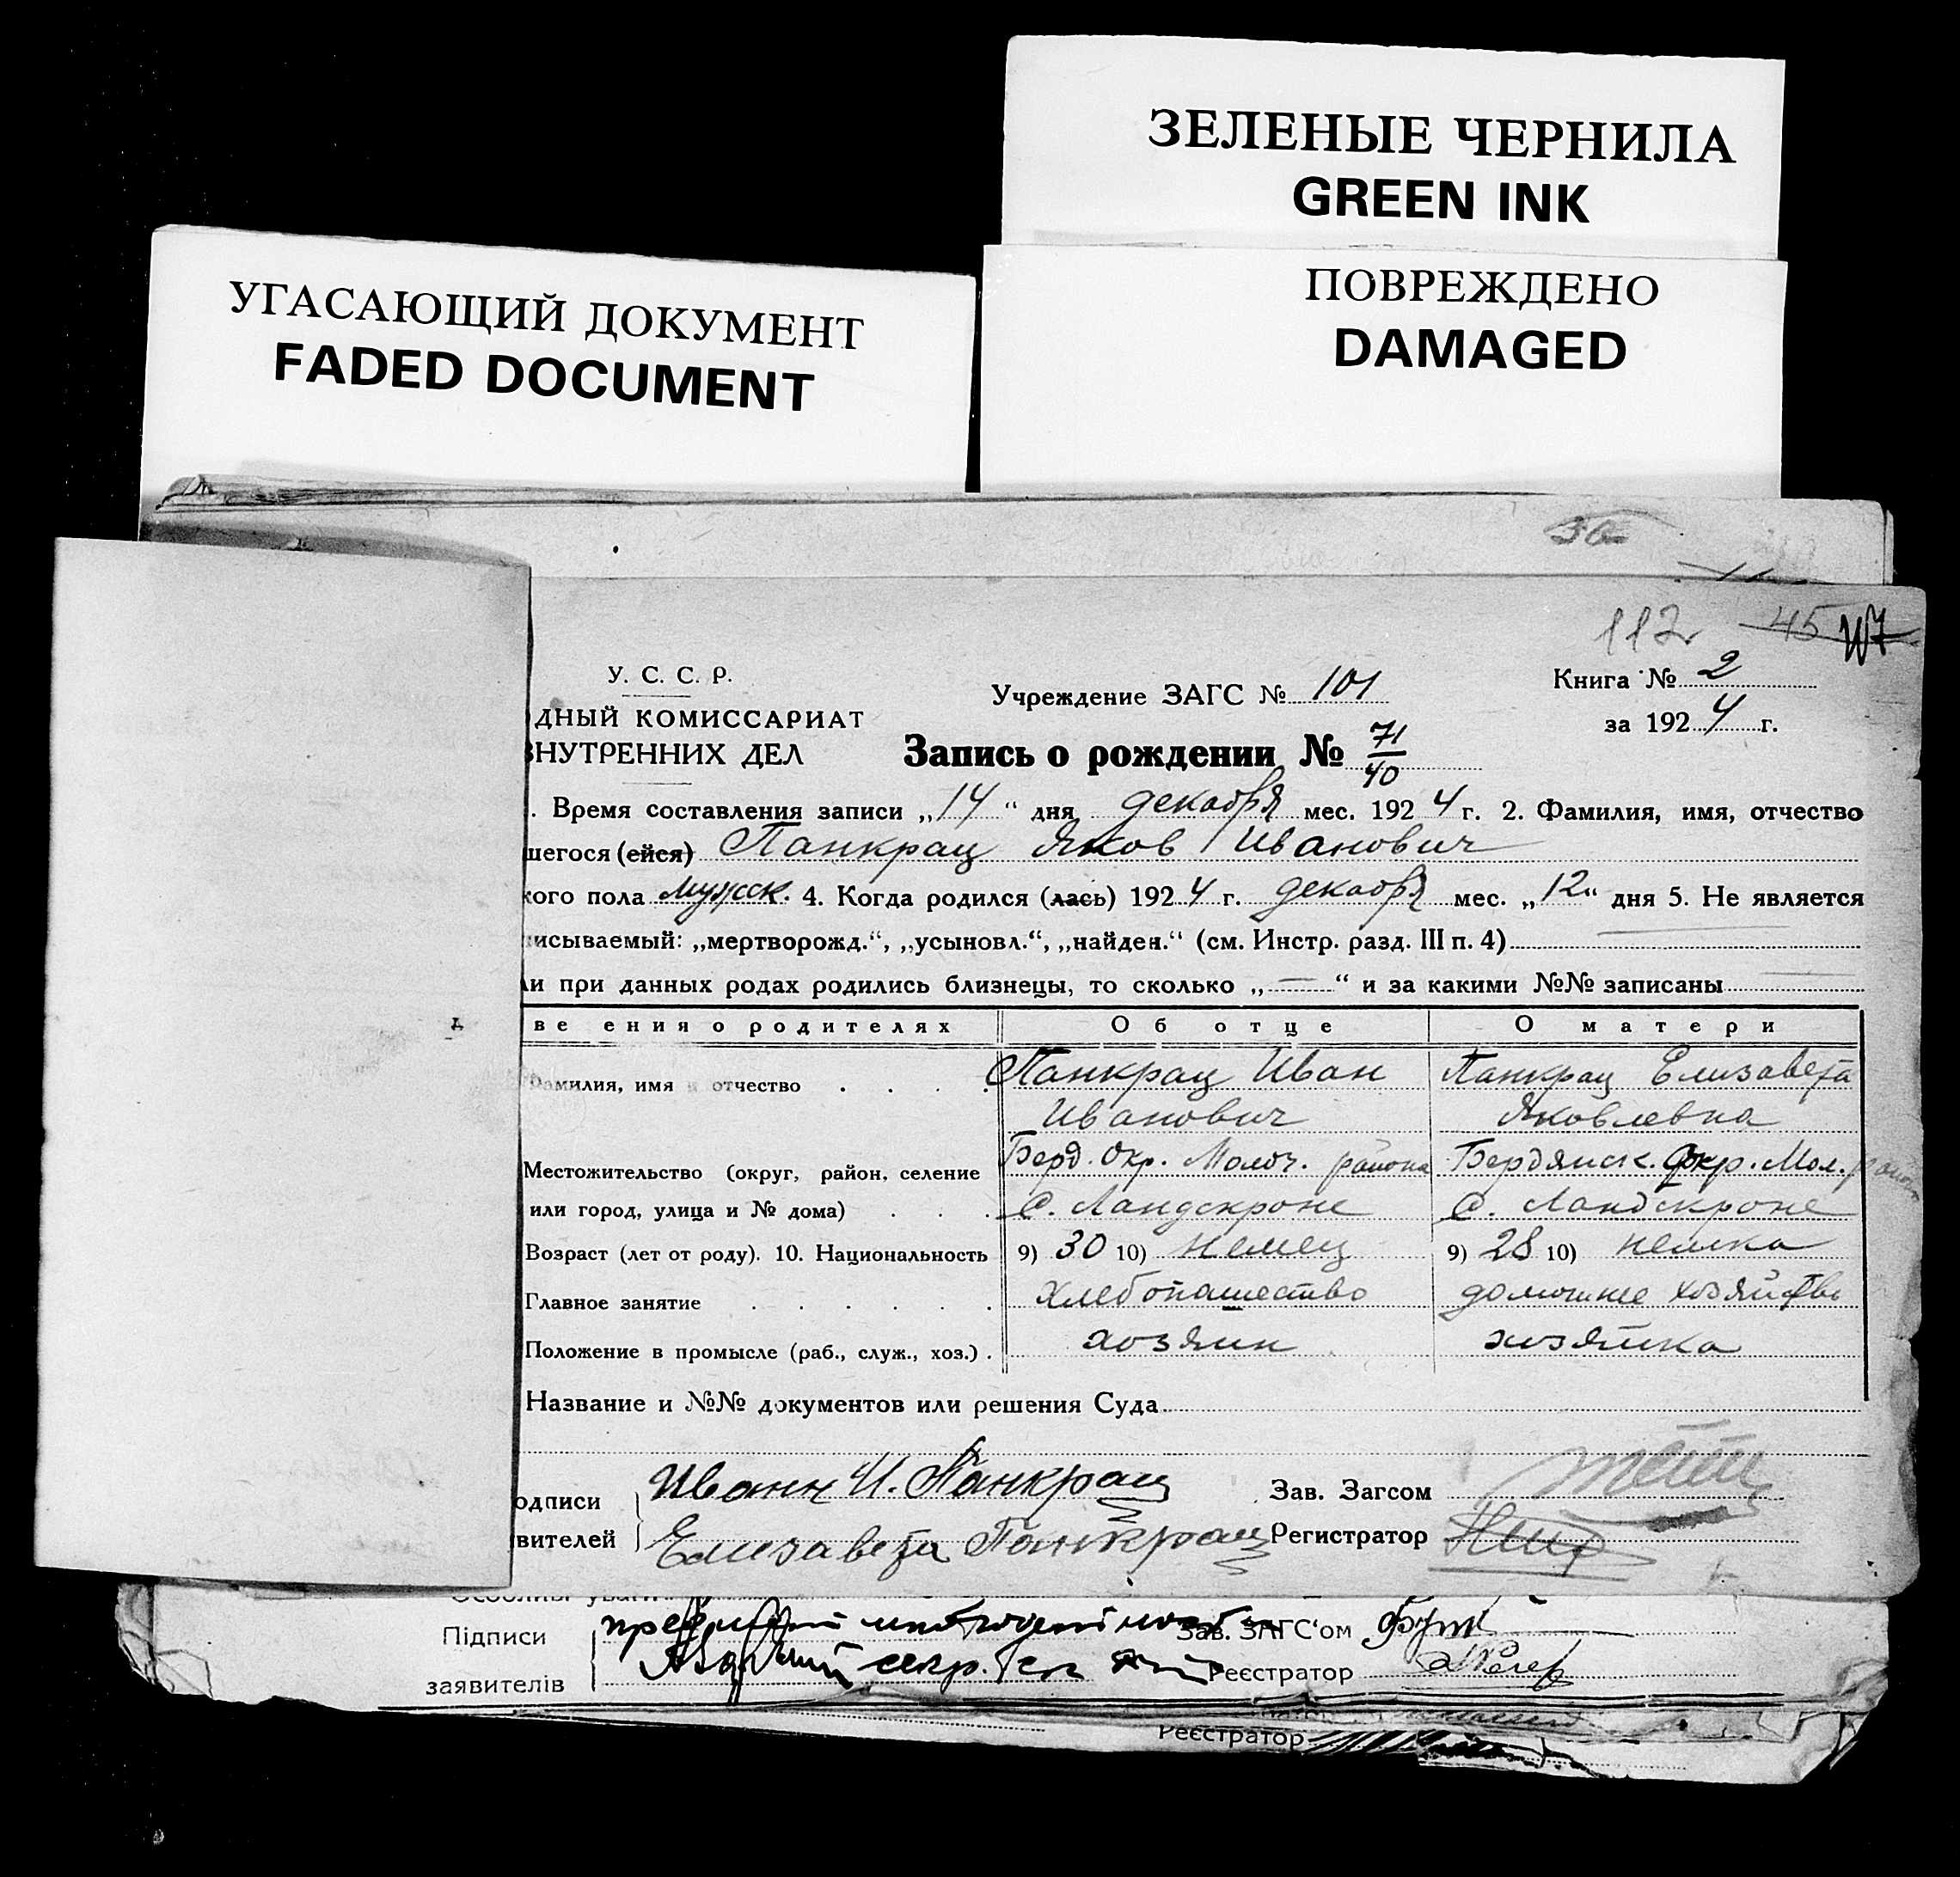 ЗЕЛЕНЫЕ ЧЕРНИЛА
GREEN INK
УГАСАЮЩИЙ ДОКУМЕНТ
FADED DOCUMENT
ПОВРЕЖДЕНО
DAMAGED
36
112 45 117
У. С. С. Р.
Учреждение ЗАГС № 101
Книга № 2
ДНЫЙ КОМИССАРИАТ
за 1924 г.
ВНУТРЕННИХ ДЕЛ
Запись о рождении № 71/40
. Время составления записи „14“ дня декабря мес. 1924 г. 2. Фамилия, имя, отчество
шегося (ейся) Панкрац Яков Иванович
кого пола мужск. 4. Когда родился (лась) 1924 г. декабря мес. „12“ дня 5. Не является
исываемый: „мертворожд.“, „усыновл.“, „найден.“ (см. Инстр. разд. III п. 4)
ли при данных родах родились близнецы, то сколько „—“ и за какими №№ записаны
д ве ения о родителях Об отце О матери
Фамилия, имя и отчество Панкрац Иван Панкрац Елизавета
Иванович Яковлевна
Местожительство (округ, район, селение Берд. Окр. Молоч. района Бердянск. Окр. Мол. район
или город, улица и № дома) С. Ландскроне С. Ландскроне
Возраст (лет от роду). 10. Национальность 9) 30 10) немец 9) 28 10) немка
Главное занятие хлебопашество домошнее хозяйство
Положение в промысле (раб., служ., хоз.) хозяин хозяйка
Название и №№ документов или решения Суда
одписи Иванн И. Панкрац Зав. Загсом
вителей Елизавета Панкрац Регистратор
Особливі уваги
Підписи Зав. ЗАГС'ом
заявителів секр. Реєстратор
Реєстратор